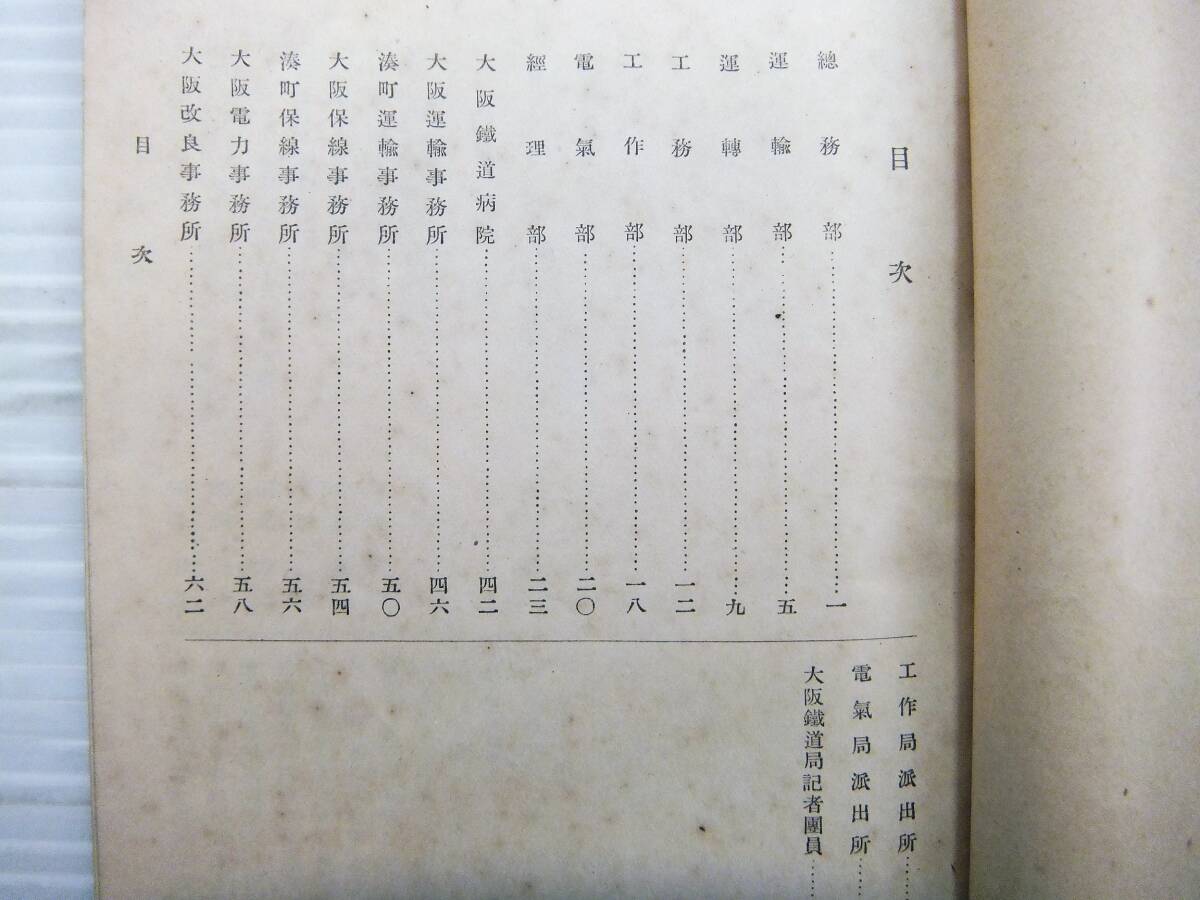 目次
總務部……一
運輸部……五
運轉部……九
工務部……一二
工作部……一八
電氣部……二〇
經理部……二三
大阪鐵道病院……四二
大阪運輸事務所……四六
湊町運輸事務所……五〇
大阪保線事務所……五四
湊町保線事務所……五六
大阪電力事務所……五八
大阪改良事務所……六二
工作局派出所……
電氣局派出所……
大阪鐵道局記者團員……
目次